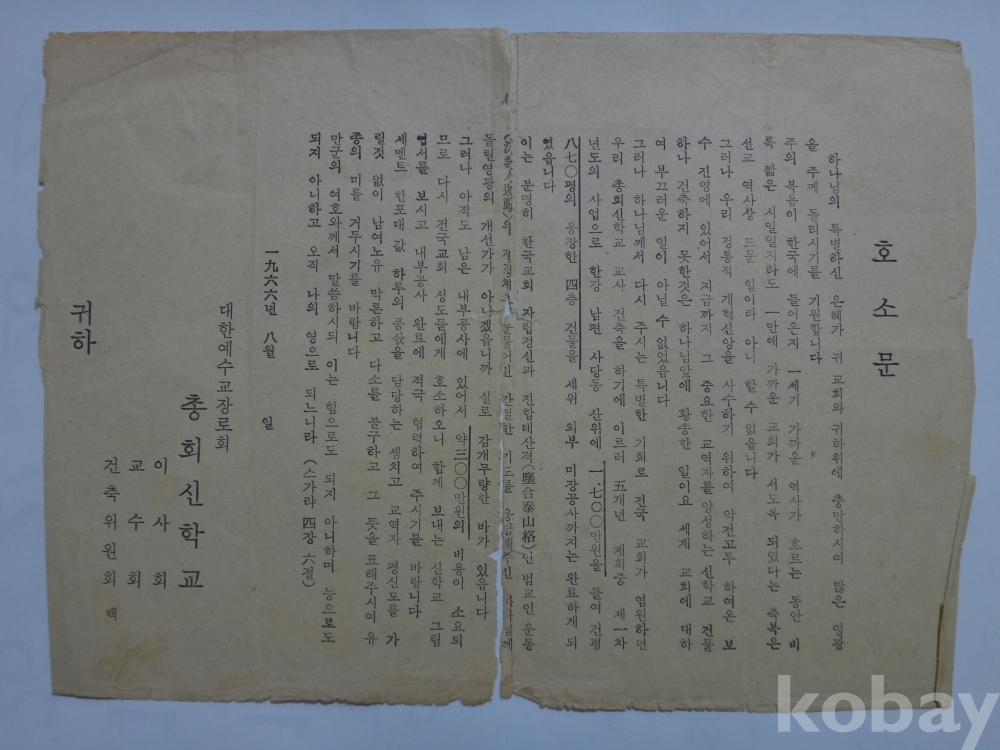 호소문
하나님의 특별하신 은혜가 귀 교회와 귀하위에 충만하시여 많은 영광
을 주께 돌리시기를 기원합니다
주의 복음이 한국에 들어온지 一세기 가까운 역사가 흐르는 동안 비
록 짧은 시일일지라도 一만에 가까운 교회가 서도록 되였다는 축복은
선교 역사상 드문 일이라 아니 할 수 없읍니다
그러나 우리 정통적 개혁신앙을 사수하기 위하여 악전고투 하여온 보
수 진영에 있어서 지금까지 그 중요한 교역자를 양성하는 신학교 건물
하나 건축하지 못한것은 하나님앞에 황송한 일이요 세계 교회에 대하
여 부끄러운 일이 아닐 수 없었읍니다
그러나 하나님께서 다시 주시는 특별한 기회로 전국 교회가 염원하던
우리 총회신학교 교사 건축을 하기에 이르러 五개년 계획중 제一차
년도의 사업으로 한강 남편 사당동 산위에 一、七○○만원을 들여 건평
八七○평의 웅장한 四층 건물을 제위 외부 미장공사까지는 완료하게 되
였읍니다
이는 분명히 한국교회 자립정신과 진합태산격(塵合泰山格)인 범교인 운동
의 눈물어린 간절한 기도를 응답해주신 하나님께
돌릴영광의 개선가가 아니겠읍니까 실로 감개무량한 바가 있읍니다
그러나 아직도 남은 내부공사에 있어서 약三○○만원의 비용이 소요되
므로 다시 전국교회 성도들에게 호소하오니 함께 보내는 신학교 그림
엽서를 보시고 내부공사 완료에 적극 협력하여 주시기를 바랍니다
세멘트 한포대 값 하루의 품삯을 담당하는 셈치고 교역자 평신도를 가
릴것 없이 남여노유 막론하고 다소를 불구하고 그 뜻을 표해주시여 유
종의 미를 거두시기를 바람니다
만군의 여호와께서 말씀하시되 이는 힘으로도 되지 아니하며 능으로도
되지 아니하고 오직 나의 영으로 되느니라 (스가랴 四장 六절)
一九六六년 八월 일
대한예수교장로회
총회신학교
이사회
교수회
건축위원회 백
귀하
kobay